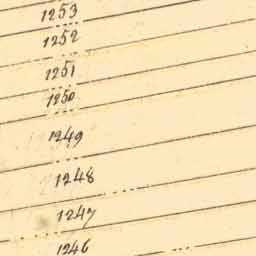 1253
1252
1251
1250
1249
1248
1247
1246